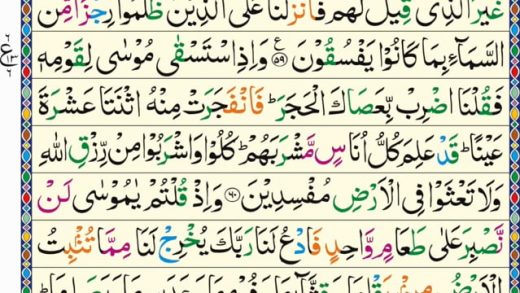 غَيْرَ الَّذِىْ قِيْلَ لَهُمْ فَاَنْزَلْنَا عَلَى الَّذِيْنَ ظَلَمُوْا رِجْزًا مِّنَ
السَّمَآءِ بِمَا كَانُوْا يَفْسُقُوْنَ ۵۹ وَاِذِ اسْتَسْقٰى مُوْسٰى لِقَوْمِهٖ
فَقُلْنَا اضْرِبْ بِّعَصَاكَ الْحَجَرَؕ فَانْفَجَرَتْ مِنْهُ اثْنَتَا عَشْرَةَ
عَيْنًاؕ قَدْ عَلِمَ كُلُّ اُنَاسٍ مَّشْرَبَهُمْؕ كُلُوْا وَاشْرَبُوْا مِنْ رِّزْقِ اللّٰهِ
وَلَا تَعْثَوْا فِى الْاَرْضِ مُفْسِدِيْنَ ۶۰ وَاِذْ قُلْتُمْ يٰمُوْسٰى لَنْ
نَّصْبِرَ عَلٰى طَعَامٍ وَّاحِدٍ فَادْعُ لَنَا رَبَّكَ يُخْرِجْ لَنَا مِمَّا تُنْۢبِتُ
الْاَرْضُ مِنْۢ